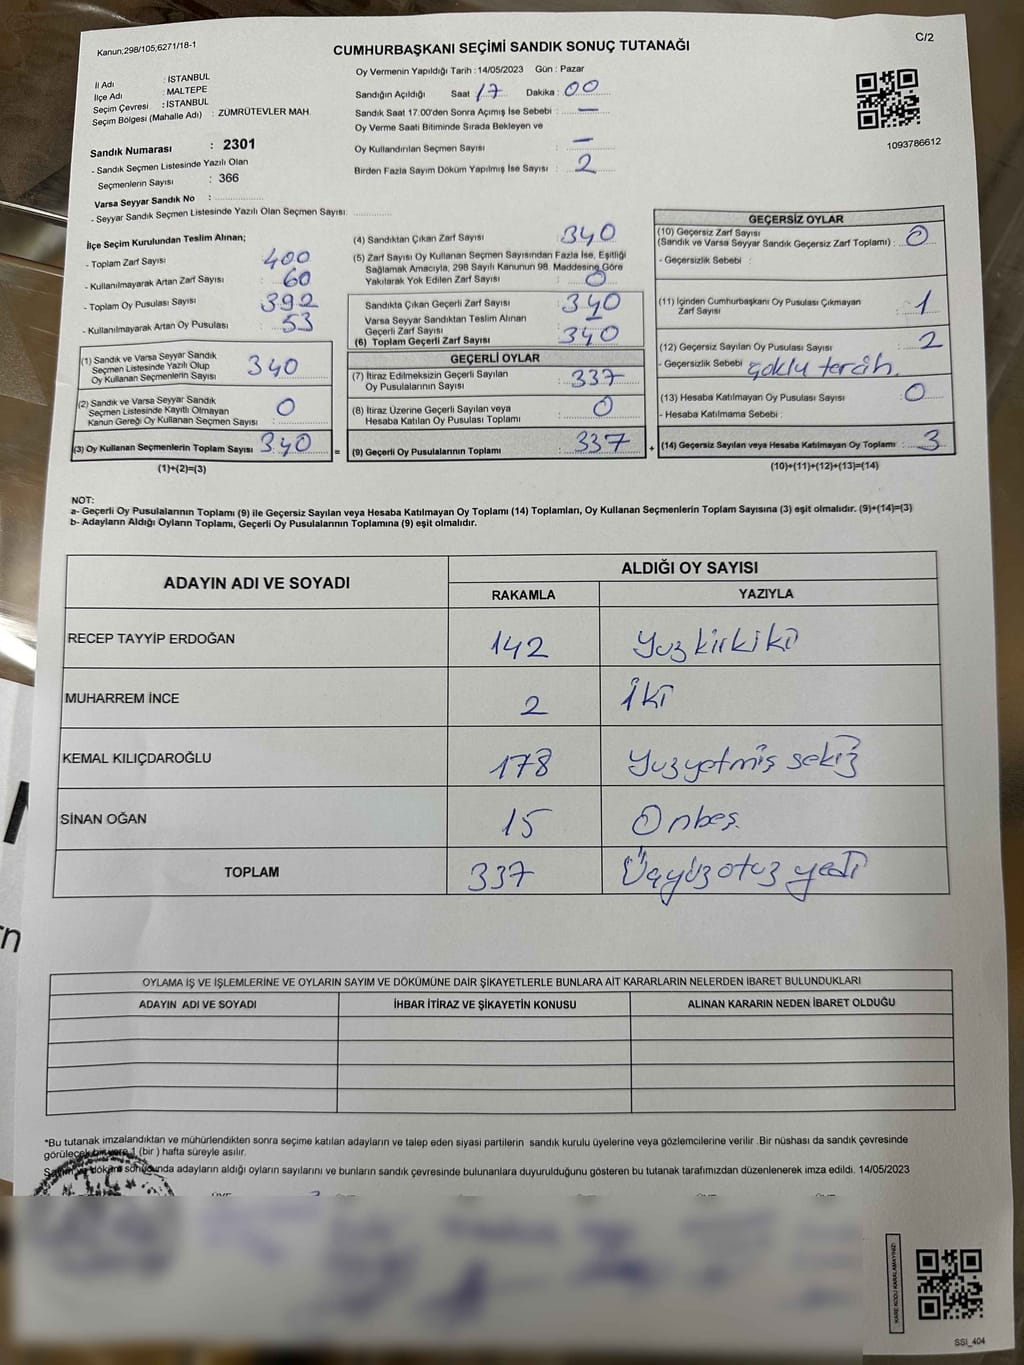 Kanun,298/105,6271/18-1
CUMHURBAŞKANI SEÇİMİ SANDIK SONUÇ TUTANAĞI
C/2
İl Adı : İSTANBUL
İlçe Adı : MALTEPE
Seçim Çevresi : İSTANBUL
Seçim Bölgesi (Mahalle Adı) : ZÜMRÜTEVLER MAH.
Sandık Numarası : 2301
- Sandık Seçmen Listesinde Yazılı Olan
Seçmenlerin Sayısı : 366
Varsa Seyyar Sandık No :
- Seyyar Sandık Seçmen Listesinde Yazılı Olan Seçmen Sayısı:
Oy Vermenin Yapıldığı Tarih : 14/05/2023 Gün : Pazar
Sandığın Açıldığı Saat 17 Dakika : 00
Sandık Saat 17.00'den Sonra Açımış İse Sebebi : —
Oy Verme Saati Bitiminde Sırada Bekleyen ve
Oy Kullandırılan Seçmen Sayısı : —
Birden Fazla Sayım Döküm Yapılmış İse Sayısı : 2
1093786612
İlçe Seçim Kurulundan Teslim Alınan;
- Toplam Zarf Sayısı : 400
- Kullanılmayarak Artan Zarf Sayısı : 60
- Toplam Oy Pusulası Sayısı : 392
- Kullanılmayarak Artan Oy Pusulası : 53
(1) Sandık ve Varsa Seyyar Sandık
Seçmen Listesinde Yazılı Olup
Oy Kullanan Seçmenlerin Sayısı : 340
(2) Sandık ve Varsa Seyyar Sandık
Seçmen Listesinde Kayıtlı Olmayan
Kanun Gereği Oy Kullanan Seçmen Sayısı : 0
(3) Oy Kullanan Seçmenlerin Toplam Sayısı : 340
(1)+(2)=(3)
(4) Sandıktan Çıkan Zarf Sayısı : 340
(5) Zarf Sayısı Oy Kullanan Seçmen Sayısından Fazla İse, Eşitliği
Sağlamak Amacıyla, 298 Sayılı Kanunun 98. Maddesine Göre
Yakılarak Yok Edilen Zarf Sayısı : 0
Sandıkta Çıkan Geçerli Zarf Sayısı : 340
Varsa Seyyar Sandıktan Teslim Alınan
Geçerli Zarf Sayısı : -
(6) Toplam Geçerli Zarf Sayısı : 340
GEÇERLİ OYLAR
(7) İtiraz Edilmeksizin Geçerli Sayılan
Oy Pusulalarının Sayısı : 337
(8) İtiraz Üzerine Geçerli Sayılan veya
Hesaba Katılan Oy Pusulası Toplamı : 0
= (9) Geçerli Oy Pusulalarının Toplamı : 337 +
GEÇERSİZ OYLAR
(10) Geçersiz Zarf Sayısı
(Sandık ve Varsa Seyyar Sandık Geçersiz Zarf Toplamı) : 0
- Geçersizlik Sebebi :
(11) İçinden Cumhurbaşkanı Oy Pusulası Çıkmayan
Zarf Sayısı : 1
(12) Geçersiz Sayılan Oy Pusulası Sayısı : 2
- Geçersizlik Sebebi : çoklu tercih.
(13) Hesaba Katılmayan Oy Pusulası Sayısı : 0
- Hesaba Katılmama Sebebi :
(14) Geçersiz Sayılan veya Hesaba Katılmayan Oy Toplamı : 3
(10)+(11)+(12)+(13)=(14)
NOT:
a- Geçerli Oy Pusulalarının Toplamı (9) ile Geçersiz Sayılan veya Hesaba Katılmayan Oy Toplamı (14) Toplamları, Oy Kullanan Seçmenlerin Toplam Sayısına (3) eşit olmalıdır. (9)+(14)=(3)
b- Adayların Aldığı Oyların Toplamı, Geçerli Oy Pusulalarının Toplamına (9) eşit olmalıdır.
ADAYIN ADI VE SOYADI
ALDIĞI OY SAYISI
RAKAMLA YAZIYLA
RECEP TAYYİP ERDOĞAN 142 Yüzkirkiki
MUHARREM İNCE 2 İki
KEMAL KILIÇDAROĞLU 178 Yüzyetmiş sekiz
SİNAN OĞAN 15 Onbeş
TOPLAM 337 Üçyüzotuz yedi
OYLAMA İŞ VE İŞLEMLERİNE VE OYLARIN SAYIM VE DÖKÜMÜNE DAİR ŞİKAYETLERLE BUNLARA AİT KARARLARIN NELERDEN İBARET BULUNDUKLARI
ADAYIN ADI VE SOYADI İHBAR İTİRAZ VE ŞİKAYETİN KONUSU ALINAN KARARIN NEDEN İBARET OLDUĞU
*Bu tutanak imzalandıktan ve mühürlendikten sonra seçime katılan adayların ve talep eden siyasi partilerin sandık kurulu üyelerine veya gözlemcilerine verilir .Bir nüshası da sandık çevresinde
görülecek bir yere 1 (bir ) hafta süreyle asılır.
Sayım ve döküm sonucunda adayların aldığı oyların sayılarını ve bunların sandık çevresinde bulunanlara duyurulduğunu gösteren bu tutanak tarafımızdan düzenlenerek imza edildi. 14/05/2023
KARE KODU KARALAMAYINIZ!
SSI_404